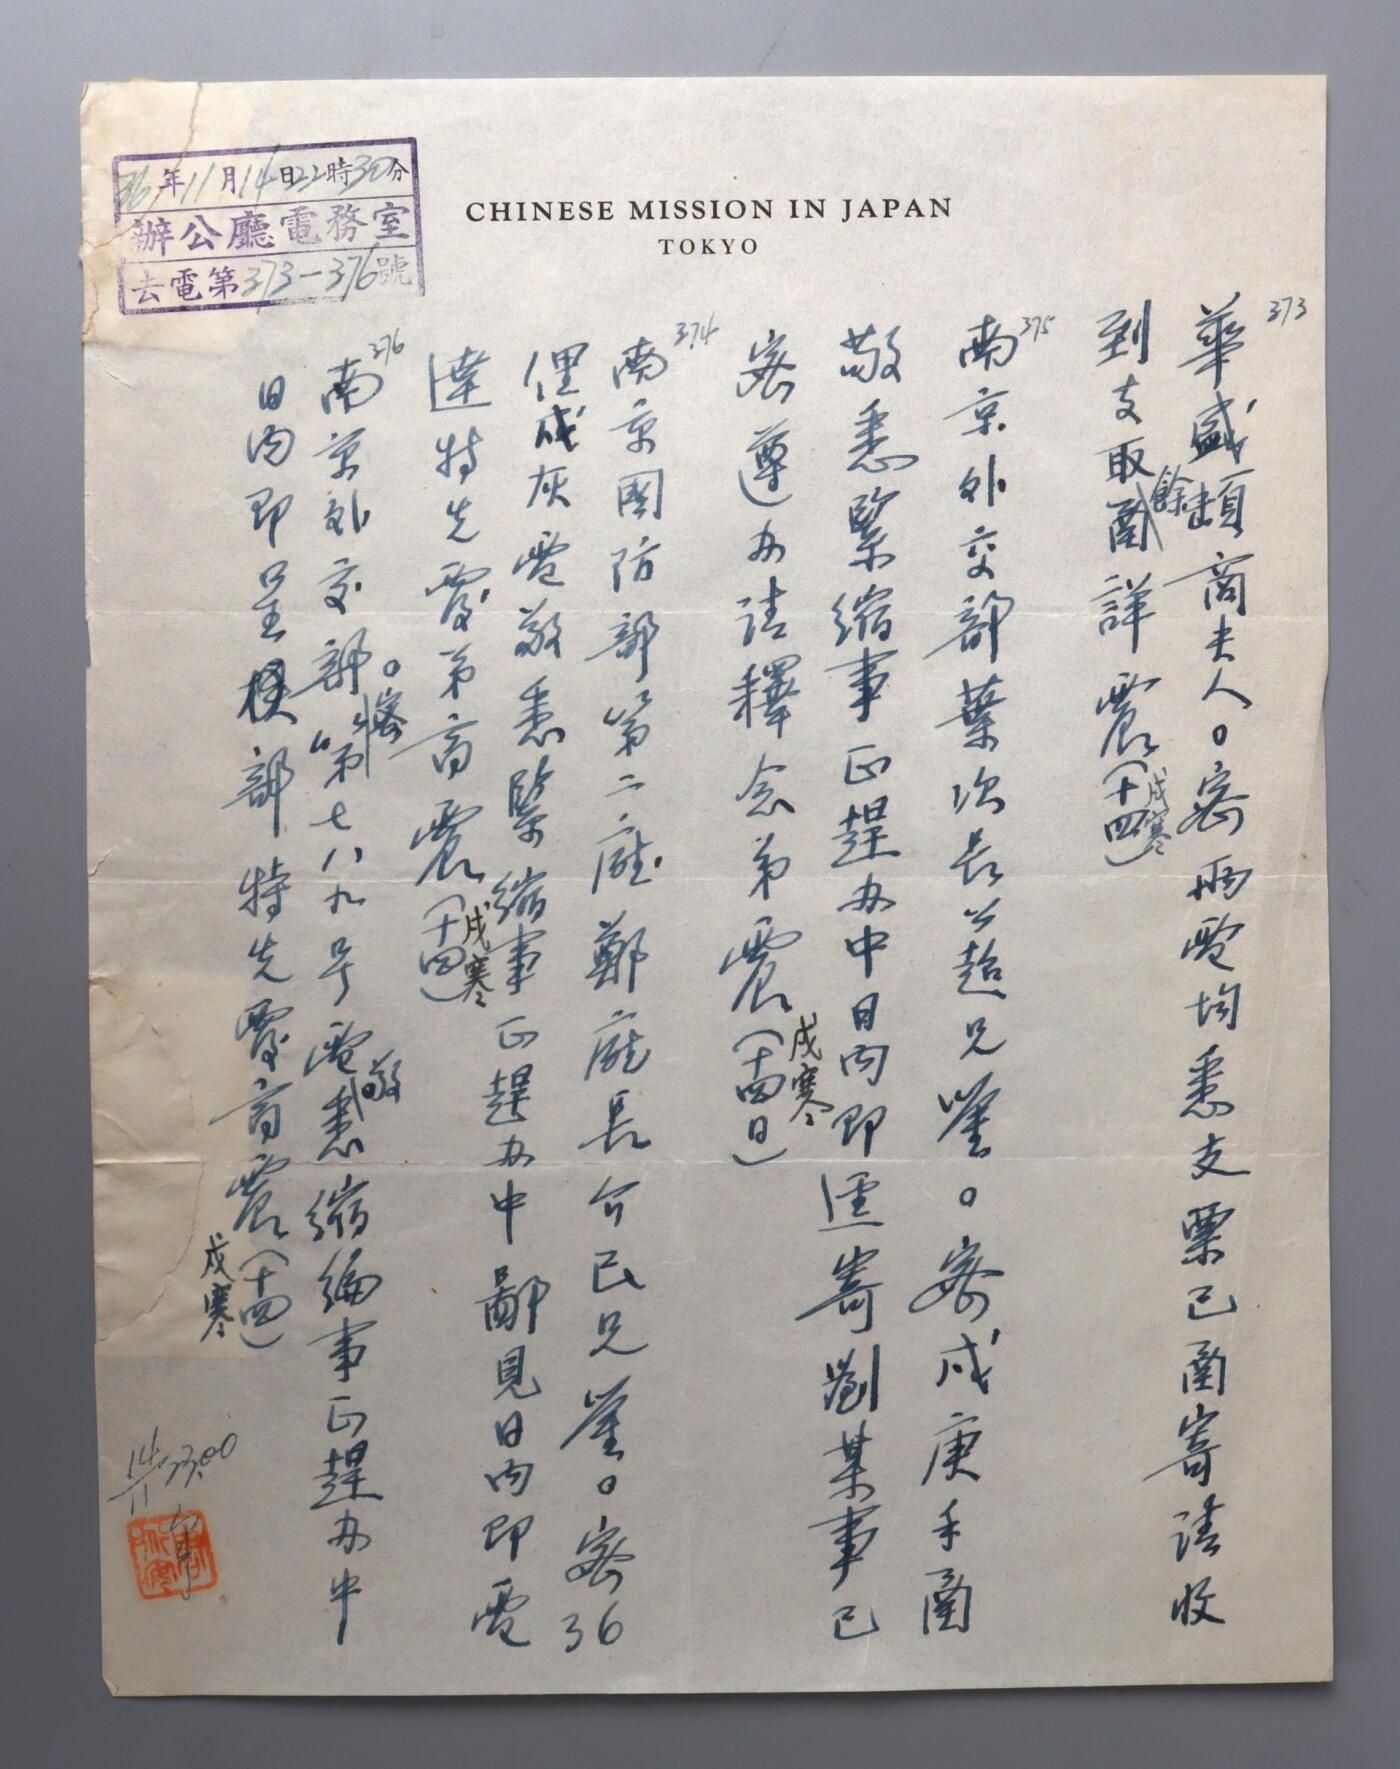 CHINESE MISSION IN JAPAN
TOKYO
36年11月14日22時30分
辦公廳電務室
去電第373-376號
373
華盛頓商夫人。密兩電均悉支票已函寄請收
到支取餘函詳震(十四)
戌寒
375
南京外交部葉次長公超兄鑒。密戌庚手函
敬悉緊縮事正趕办中日內即逕寄劉某事已
密遵办請釋念弟震(十四日)
戌寒
374
南京國防部第二廳鄭廳長介民兄鑒。密36
俚戌灰電敬悉緊縮事正趕办中鄙見日內即電
達特先覆弟商震(十四)
戌寒
376
南京外交部。密第七八九号電敬悉縮編事正趕办中
日內即呈核部特先覆商震(十四)
戌寒
14/11 23.00